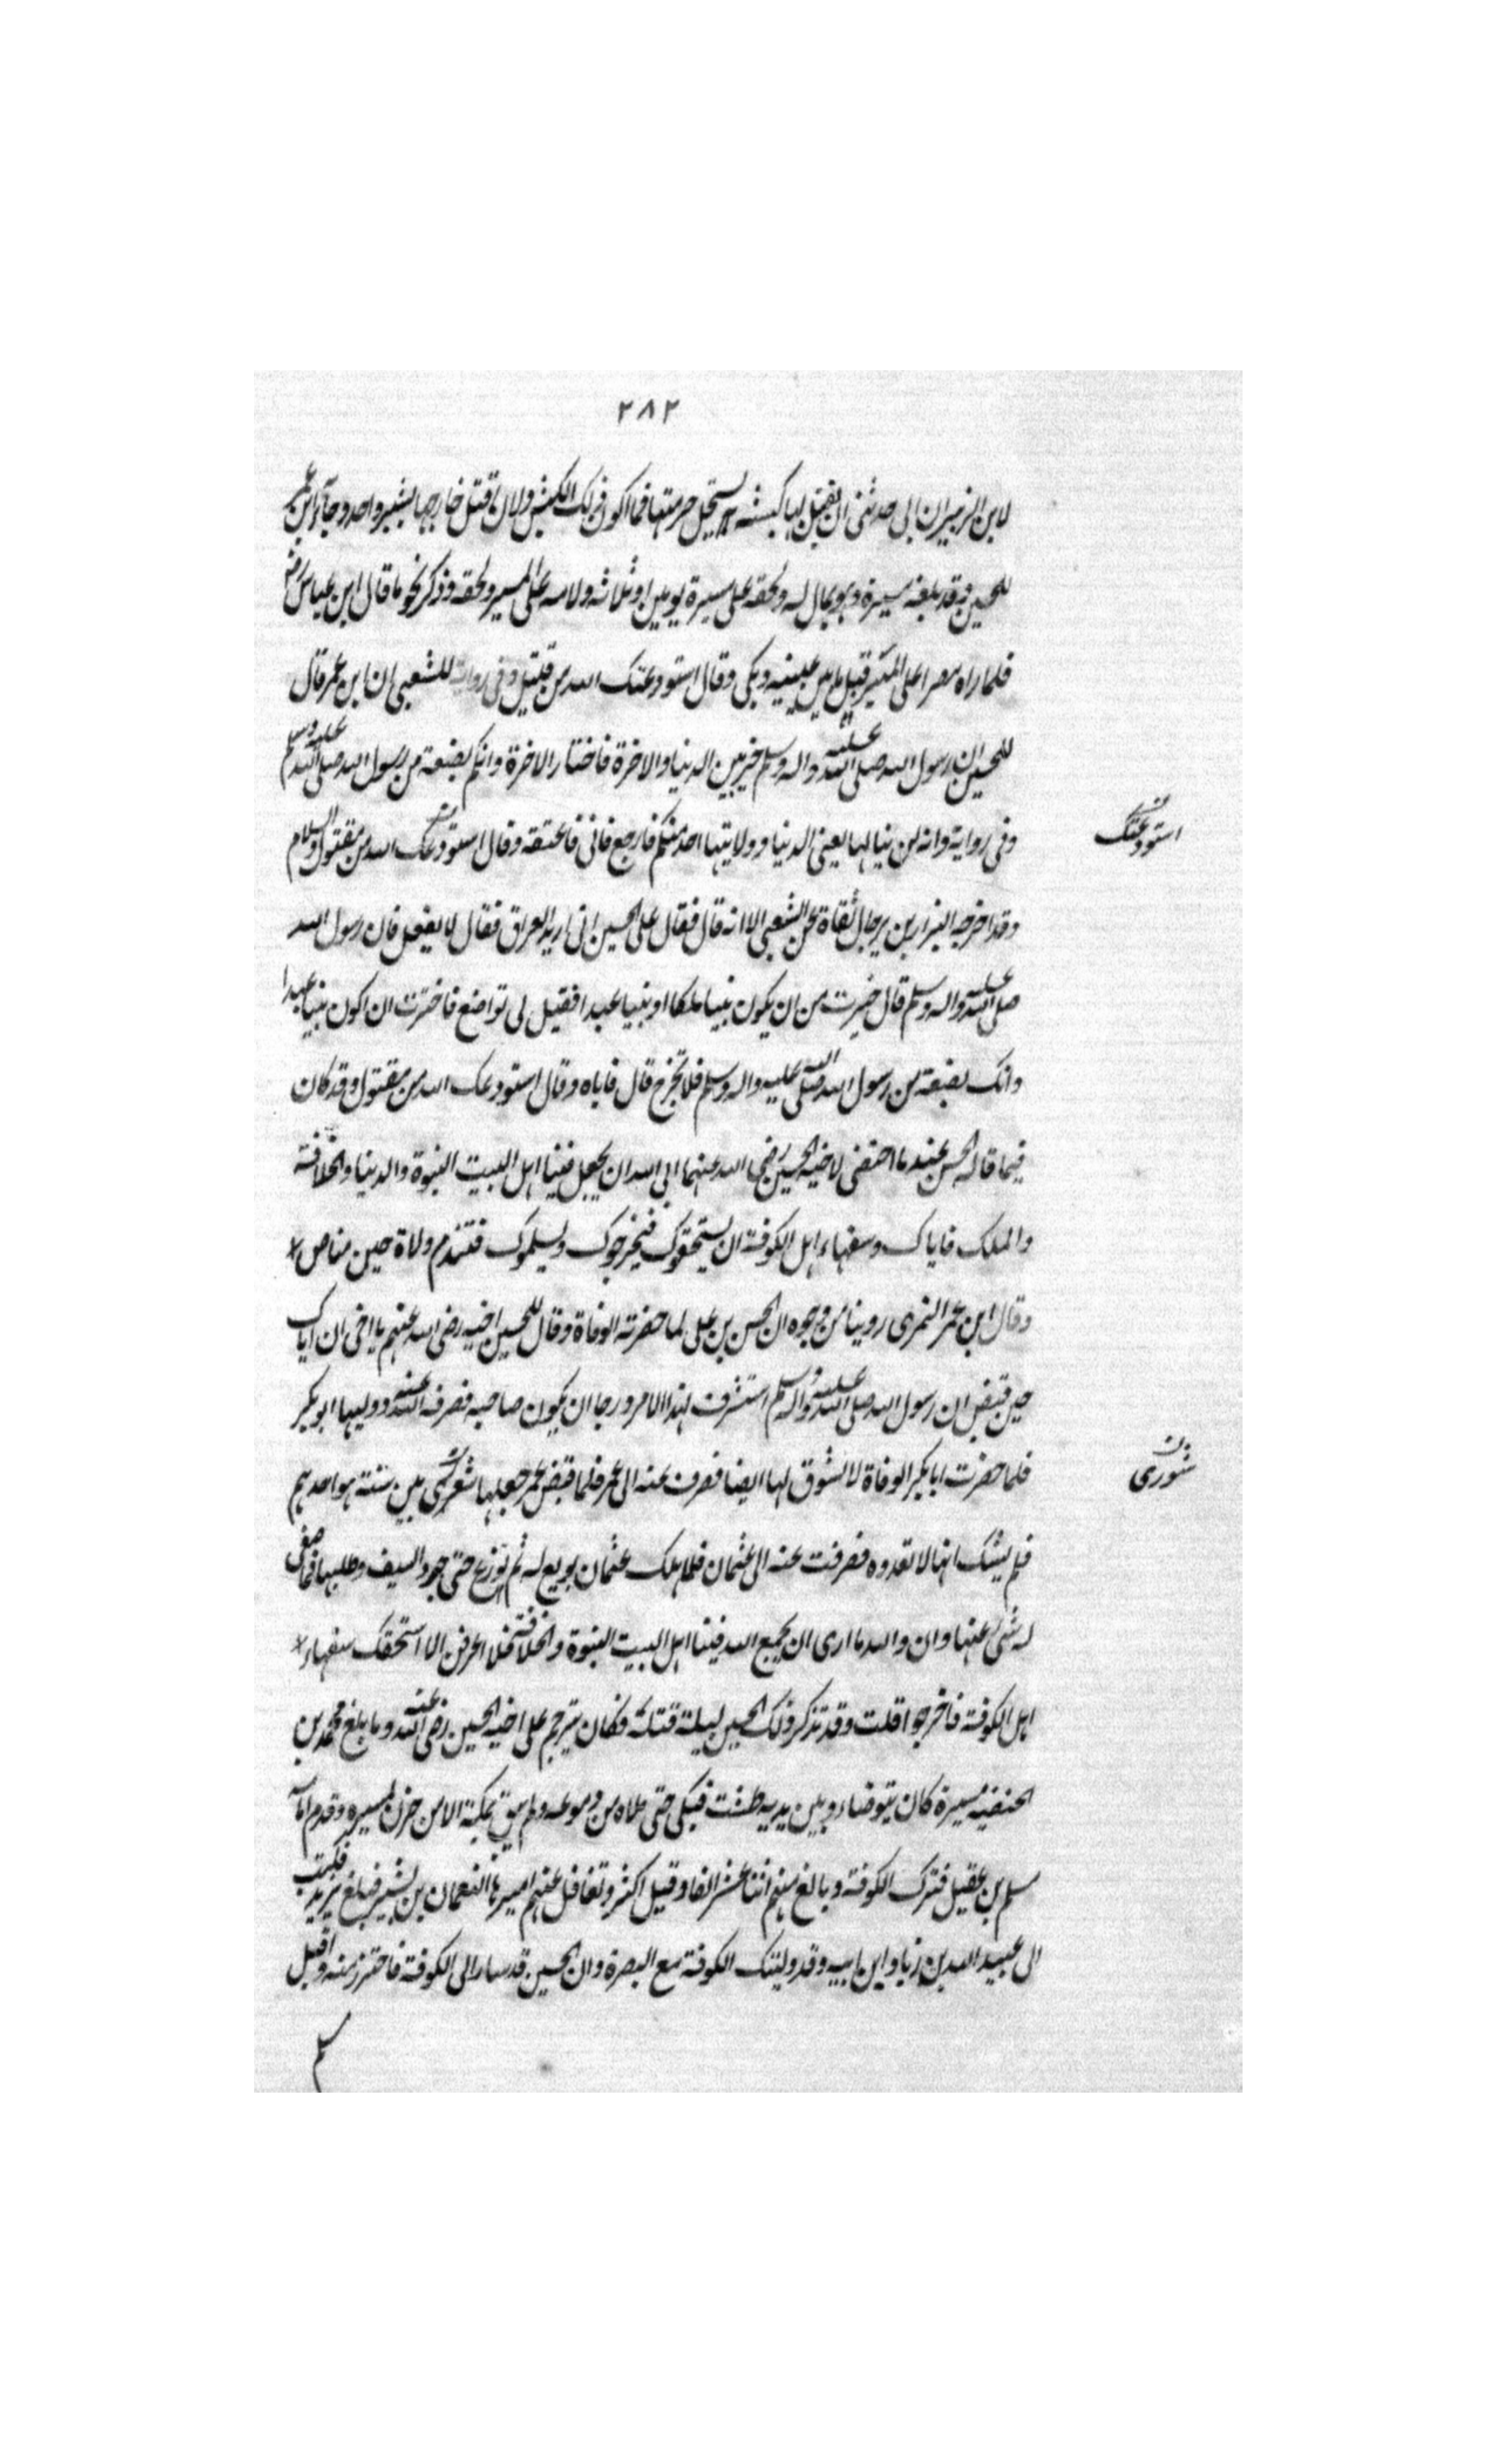 ٢٨٢
لابن الزبير ان ابى حدثنى ان بقتل لها كبشه يستحل حرمتها فما اكون ذلك الكبش ولان اقتل خارجها بشبر واحد وجاء ابن عمر
للحسين وقد بلغه مسيرة وهو بمال له ولحقه على مسيرة يومين او ثلاثه ولامه على المسير ولحقه وذكر نحو ما قال ابن عباس رض
فلما راه مصرا على المسير قبل ما بين عينيه وبكى وقال استودعتك الله من قتيل وفى رواية للشعبى ان ابن عمر قال
للحسين ان رسول الله صلى الله عليه واله وسلم خير بين الدنيا والاخرة فاختار الاخرة وانكم بضعة من رسول الله صلى الله عليه وسلم
وفى رواية وانه لن ينالها يعنى الدنيا وولايتها احد منكم فارجع فابى فاعتنقه وقال استودعك الله من مقتول والسلام
استودعتك
وقد اخرجه البزار بن برجال ثقاة عن الشعبى الا انه قال فقال على الحسين انى اريد العراق فقال لا تفعل فان رسول الله
صلى الله عليه واله وسلم قال خيرت من ان يكون نبيا ملكا او نبيا عبدا فقيل لى تواضع فاخترت ان اكون نبيا عبدا
وانك بضعة من رسول الله صلى الله عليه واله وسلم فلا تخرج قال فاباه وقال استودعك الله من مقتول وقد كان
فيما قاله الحسن عندما احتضر لاخيه الحسين رضى الله عنهما ابى الله ان يجعل فينا اهل البيت النبوة والدنيا والخلافة
والملك فاياك وسفهاء اهل الكوفة ان يستخفوك فيخرجوك ويسلموك فتندم ولاة حين مناص
وقال ابن عمر النمرى روينا من وجوه ان الحسن بن على لما حضرته الوفاة وقال للحسين اخيه رضى الله عنهم يا اخى ان اباك
حين قبض ان رسول الله صلى الله عليه واله وسلم استشرف لهذا الامر ورجا ان يكون صاحبه فصرفه الله عنه ووليها ابو بكر
فلما حضرت ابا بكر الوفاة لا تشوق لها ايضا فصرف عنه الى عمر فلما قبض عمر جعلها شورى بين ستة هو احدهم
شورى
فلم يشك انها لا تعدوه فصرفت عنه الى عثمان فلما هلك عثمان بويع له ثم نوزع حتى جرد السيف وطلبها فما صفى
له شى عنها وان والله ما ارى ان يجمع الله فينا اهل البيت النبوة والخلافة فلا اعرفن الا استخفك سفهاء
اهل الكوفة فاخرجوا قلت وقد تذكر ذلك الحسين ليلة قتله فكان يترحم على اخيه الحسين رضى الله عنه وما بلغ محمد بن
الحنفيه مسيرة كان يتوضاء وبين يديه طشت فبكى حتى ملاه من دموعه ولم يبق بمكة الا من حزن لمسيره وقدم امامه
مسلم بن عقيل فترك الكوفة وبالغ منهم اثنا عشر الفا وقيل اكثر وتغافل عنهم اميرها النعمان بن بشير فبلغ يزيد فكتب
الى عبيد الله بن زياد ابن ابيه وقد وليتك الكوفة مع البصرة وان الحسين قد سار الى الكوفة فاحترز منه واقبل
مسلم